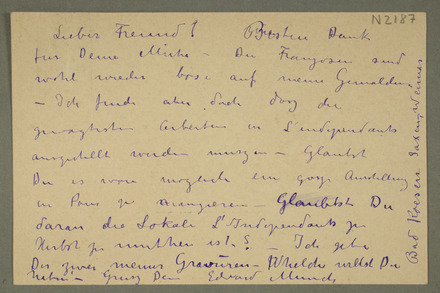 N 2187
Lieber Freund! Besten Dank
für Deine Mühe – Die Franzosen sind
wohl wieder böse auf meine Gemälden,
– Ich finde aber doch das die
arbeiten in L'independants
ausgestellt werden – Glaubst
Du es wäre möglich ein Ausstellung
in Paris zu arangieren – Glaubst Du
daran die Lokale L'Independants zu
Herbst zu ist? – Ich gebe
Dir zwei meiner Gravüren – Whelche willst Du
haben – Gruss Dein Edvard Munch
Bad Kœsen Saxen, Weimar